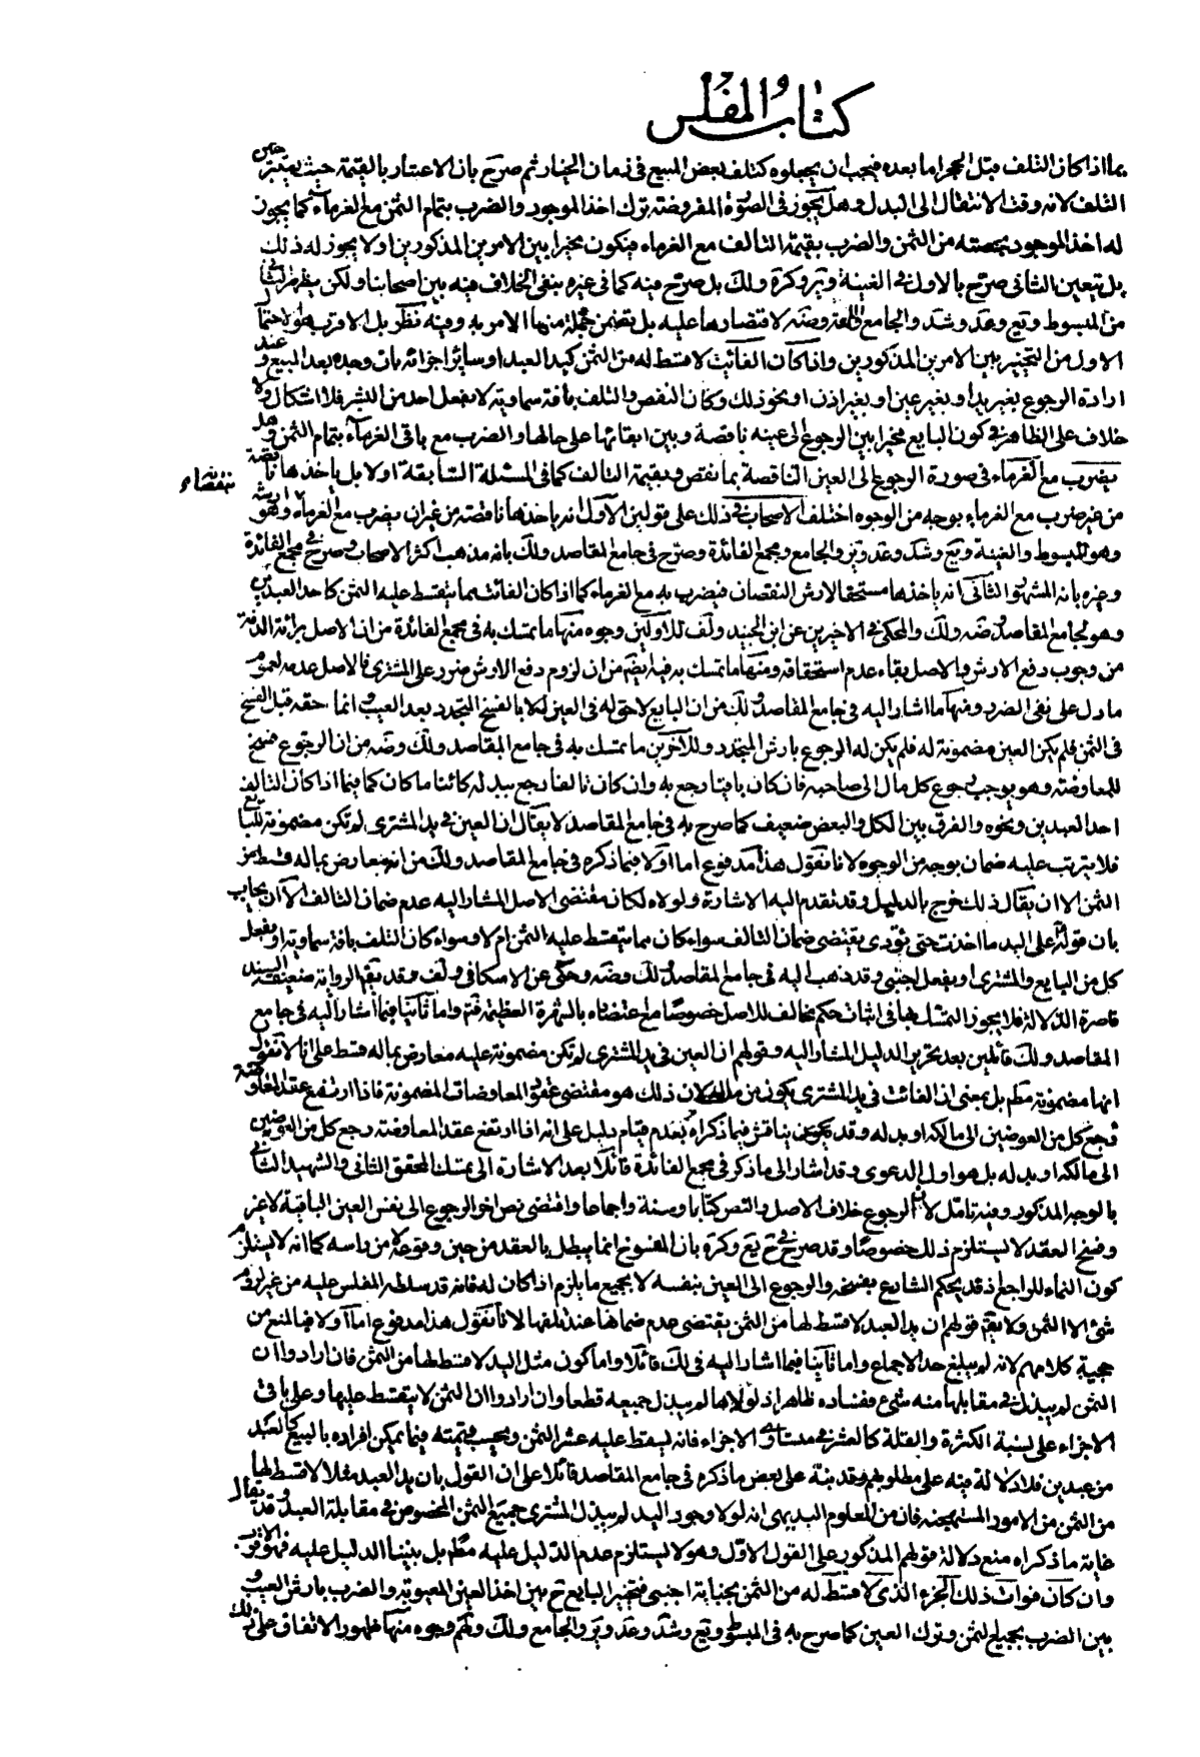 كتاب المفلس
بما اذا كان التلف قبل الحجر اما بعده فيجب ان يجعلوه كتلف بعض المبيع فى زمان الخيار ثم صرّح بان الاعتبار بالقيمة حيث يعتبر حين
التلف لانه وقت الانتقال الى البدل وهل يجوز فى الصورة المفروضة ترك اخذ الموجود والضرب بتمام الثمن مع الغرماء كما يجوز
له اخذ الموجود بحصته من الثمن والضرب بقيمة التالف مع الغرماء فيكون مخيرا بين الامرين المذكورين اولا يجوز له ذلك
بل يتعين الثانى صرّح بالاول فى الغنية وير وكرة ولك بل صرّح فيه كما فى غيره بنفى الخلاف فيه بين اصحابنا ولكن يظهر الثانى
من المبسوط ويع وعد وشد والجامع واللمعة وضه لاقتصارها عليه بل تضمن جملة منها الامر به وفيه نظر بل الاقرب هو الاحتمال
الاول من التخيير بين الامرين المذكورين واذا كان الفائت لا قسط له من الثمن كيد العبد او سائر اجزائه بان وجده بعد البيع وعند
ارادة الرجوع بغير يد او بغير عين او بغير اذن او نحو ذلك وكان النقص والتلف بآفة سماوية لا بفعل احد من البشر فلا اشكال ولا
خلاف على الظاهر فى كون البايع مخيرا بين الرجوع الى عينه ناقصة وبين ابقائها على حالها والضرب مع باقى الغرماء بتمام الثمن وهل
يضرب مع الغرماء فى صورة الرجوع الى العين الناقصة بما نقص وبقيمة التالف كما فى المسئلة السّابقة اولا بل ياخذها ناقصة
من غير ضرب مع الغرماء بوجه من الوجوه اختلف الاصحاب فى ذلك على قولين الاول انه ياخذها ناقصة من غير ان يضرب مع الغرماء بارش وهو
وهو للمبسوط والغنية ويع وشد وعد وير والجامع ومجمع الفائدة وصرّح فى جامع المقاصد ولك بانه مذهب اكثر الاصحاب وصرح فى مجمع الفائدة
وغيره بانه المشهور الثانى انه ياخذها مستحقا لارش النقصان فيضرب به مع الغرماء كما اذا كان الفائت مما يتقسط عليه الثمن كاحد العبدين
وهو لجامع المقاصد وضه ولك والمحكى فى الاخيرين عن ابن الجنيد ولف للاولين وجوه منها ما تمسك به فى مجمع الفائدة من ان الاصل برائة الذمة
من وجوب دفع الارش والاصل بقاء عدم استحقاقه ومنها ما تمسك به فيه ايضم من ان لزوم دفع الارش ضرر على المشترى فالاصل عدمه لعموم
ما دل على نفى الضرر ومنها ما اشار اليه فى جامع المقاصد ولك من ان البايع لا حق له فى العين الا بالفسخ المتجدد بعد العيب وانما حقه قبل الفسخ
فى الثمن فلم يكن العين مضمونة له فلم يكن له الرجوع بارش المتجدد وللآخرين ما تمسك به فى جامع المقاصد ولك وضه من ان الرجوع فسخ
للمعاوضة وهو يوجب رجوع كل مال الى صاحبه فان كان باقيا رجع به وان كان تالفا رجع ببدله كائنا ما كان كما فيما اذا كان التالف
احد العبدين ونحوه والفرق بين الكل والبعض ضعيف كما صرح به فى جامع المقاصد لا يقال ان العين فى يد المشترى لم تكن مضمونة للبايع
فلا يترتب عليه ضمان بوجه من الوجوه لانا نقول هذا مدفوع اما اولا فبما ذكره فى جامع المقاصد ولك من انه معارض بما له قسط من
الثمن الا ان يقال ذلك خرج بالدليل وقد تقدم اليه الاشارة ولولاه لكان مقتضى الاصل المشار اليه عدم ضمان التالف الا ان يجاب
بان قوله على اليد ما اخذت حتى تؤدى يقتضى ضمان التالف سواء كان مما يتقسط عليه الثمن ام لا وسواء كان التلف بآفة سماوية او بفعل
كل من البايع والمشترى او بفعل اجنبى وقد ذهب اليه فى جامع المقاصد ولك وضه وحكى عن الاسكافى ولف وقد يقم الرواية ضعيفة السند
قاصرة الدلالة فلا يجوز التمسك بها فى اثبات حكم مخالف للاصل خصوصا مع اعتضاده بالشهرة العظيمة فتم واما ثانيا فبما اشار اليه فى جامع
المقاصد ولك قائلين بعد تحرير الدليل المشار اليه وقولهم ان العين فى يد المشترى لم تكن مضمونة عليه معارض بما له قسط على انا لا نقول
انها مضمونة مطم بل بمعنى ان الفائت فى يد المشترى يكون من ماله لان ذلك هو مقتضى عقود المعاوضات المضمونة فاذا ارتفع عقد المعاوضة
رجع كل من العوضين الى مالكه او بدله وقد يناقش فيما ذكراه بعدم قيام دليل على انه اذا ارتفع عقد المعاوضة رجع كل من العوضين
الى مالكه او بدله بل هو اول الدعوى وقد اشار الى ما ذكر فى مجمع الفائدة قائلا بعد الاشارة الى تمسك المحقق الثانى والشهيد الثانى
بالوجه المذكور وفيه تامّل لان الرجوع خلاف الاصل والنص كتابا وسنة واجماعا واقتضى نص اخر الرجوع الى نفس العين الباقية لا غير
وفسخ العقد لا يستلزم ذلك خصوصا وقد صرح فى ح يع وكرة بان الفسخ انما يبطل العقد من حين وقوعه لا من راسه كما انه لا يستلزم
كون النماء للراجع اذ قد يحكم الشارع بفسخه والرجوع الى العين بنفسه لا بجميع ما يلزم اذا كان له فانه قد سلطه المفلس عليه من غير لزوم
شئ الا الثمن ولا يقم قولهم ان يد العبد لا قسط لها من الثمن يقتضى عدم ضمانها عند تلفها لانا نقول هذا مدفوع اما اولا فبالمنع من
حجية كلامهم لانه لم يبلغ حد الاجماع واما ثانيا فبما اشار اليه فى لك قائلا واما كون مثل اليد لا قسط لها من الثمن فان ارادوا ان
الثمن لم يبذل فى مقابلها منه شئ ففساده ظاهر اذ لولاها لم يبذل جميعه قطعا وان ارادوا ان الثمن لا يتقسط عليها وعلى باقى
الاجزاء على نسبة الكثرة والقلة كالعشر فى متساوى الاجزاء فانه يسقط عليه عشر الثمن وبحسب قيمته فيما يمكن افراده بالبيع كالعبد
من عبدين فلا دلالة فيه على مطلوبهم وقد بنه على بعض ما ذكره فى جامع المقاصد قائلا على ان القول بان يد العبد مثلا لا قسط لها
من الثمن من الامور المستهجنة فان من المعلوم البديهى انه لولا وجود اليد لم يبذل المشترى جميع الثمن المخصوص فى مقابلة العبد وقد يقال
غاية ما ذكراه منع دلالة قولهم المذكور على القول الاول وهو لا يستلزم عدم الدّليل عليه مطم بل بيّنا الدليل عليه فهو الاقرب
وان كان فوات ذلك الجزء الذى لا قسط له من الثمن بجناية اجنبى فتخير البايع ح بين اخذ العين المعيوبة والضرب بارش العيب و
بين الضرب بجميع الثمن وترك العين كما صرح به فى المبسوط ويع وشد وعد وير والجامع ولك ولهم وجوه منها ظهور الاتفاق على ذلك